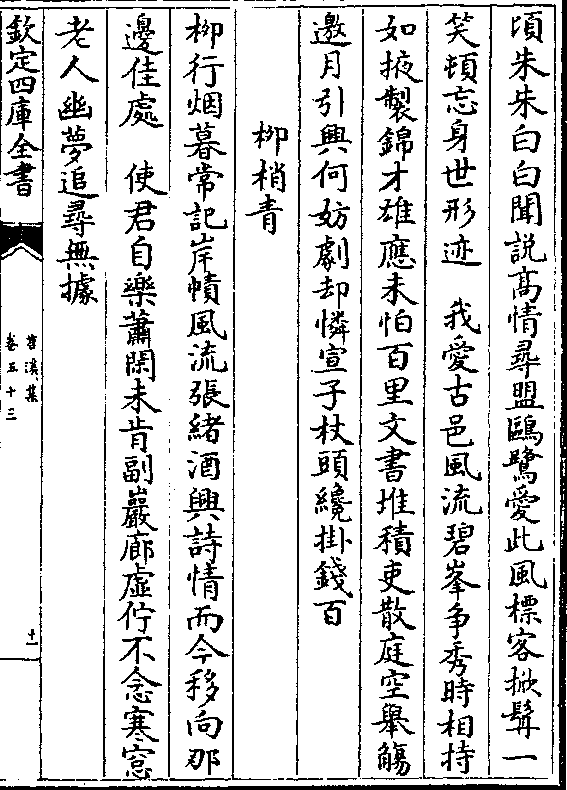 頃朱朱白白聞說髙情尋盟鷗鷺愛此風標客掀髯一
笑頓忘身世形迹　我愛古邑風流碧峯争秀時相持
如掖製錦才雄應未怕百里文書堆積吏散庭空舉觴
邀月引興何妨劇却憐宣子杖頭纔掛錢百
柳梢青
柳行烟暮常記岸幘風流張緒酒興詩情而今移向那
邊佳處　使君自樂蕭閑未肯副巖廊虛佇不念寒窓
老人幽夢追尋無據
欽定四庫全書
苕溪集
卷五十三
十一